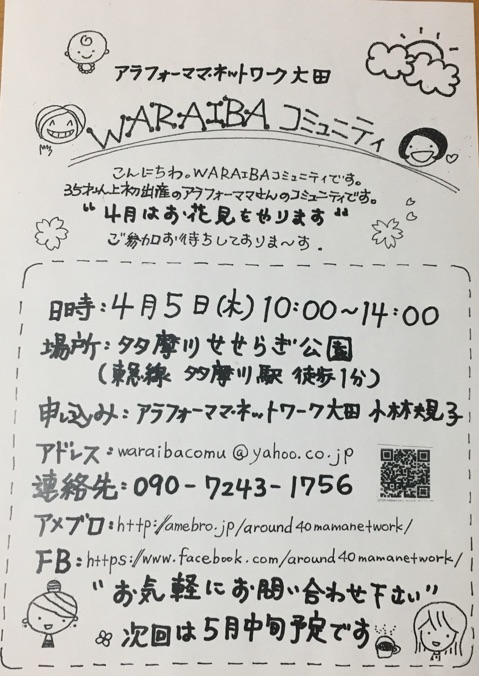 アラフォーママ・ネットワーク大田
WARAIBA コミュニティ
こんにちわ。WARAIBAコミュニティです。
35才以上初出産のアラフォーママさんのコミュニティです。
"4月はお花見をやります"
ご参加お待ちしておりま〜す.
日時:4月5日(木)10:00〜14:00
場所:多摩川せせらぎ公園
(東急線 多摩川駅 徒歩1分)
申し込み:アラフォーママ・ネットワーク大田 小林規子
アドレス:waraibacomu@yahoo.co.jp
連絡先:090-7243-1756
アメブロ:http://amebro.jp/around40mamanetwork/
FB:https://www.facebook.com/around40mamanetwork/
"お気軽にお問い合わせ下さい"
次回は5月中旬予定です